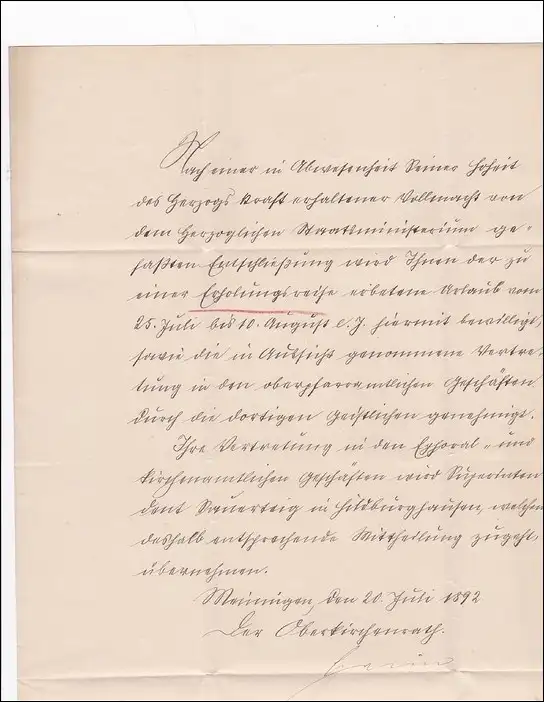 Nach einer in Abwesenheit Seiner Hoheit
des Herzogs kraft erhaltener Vollmacht von
dem Herzoglichen Staatsministerium ge-
faßten Entschließung wird Ihnen der zu
einer Erholungsreise erbetene Urlaub vom
25. Juli bis 10. August l. J. hiermit bewilligt,
sowie die in Aussicht genommene Vertre-
tung in den oberpfarramtlichen Geschäften
durch die dortigen Geistlichen genehmigt.
Ihre Vertretung in den Ephoral- und
kirchenamtlichen Geschäften wird Superinten
dent Sauerteig in Hildburghausen, welchem
deshalb entsprechende Mittheilung zugeht,
übernehmen.
Meiningen, den 20. Juli 1892
Der Oberkirchenrath.